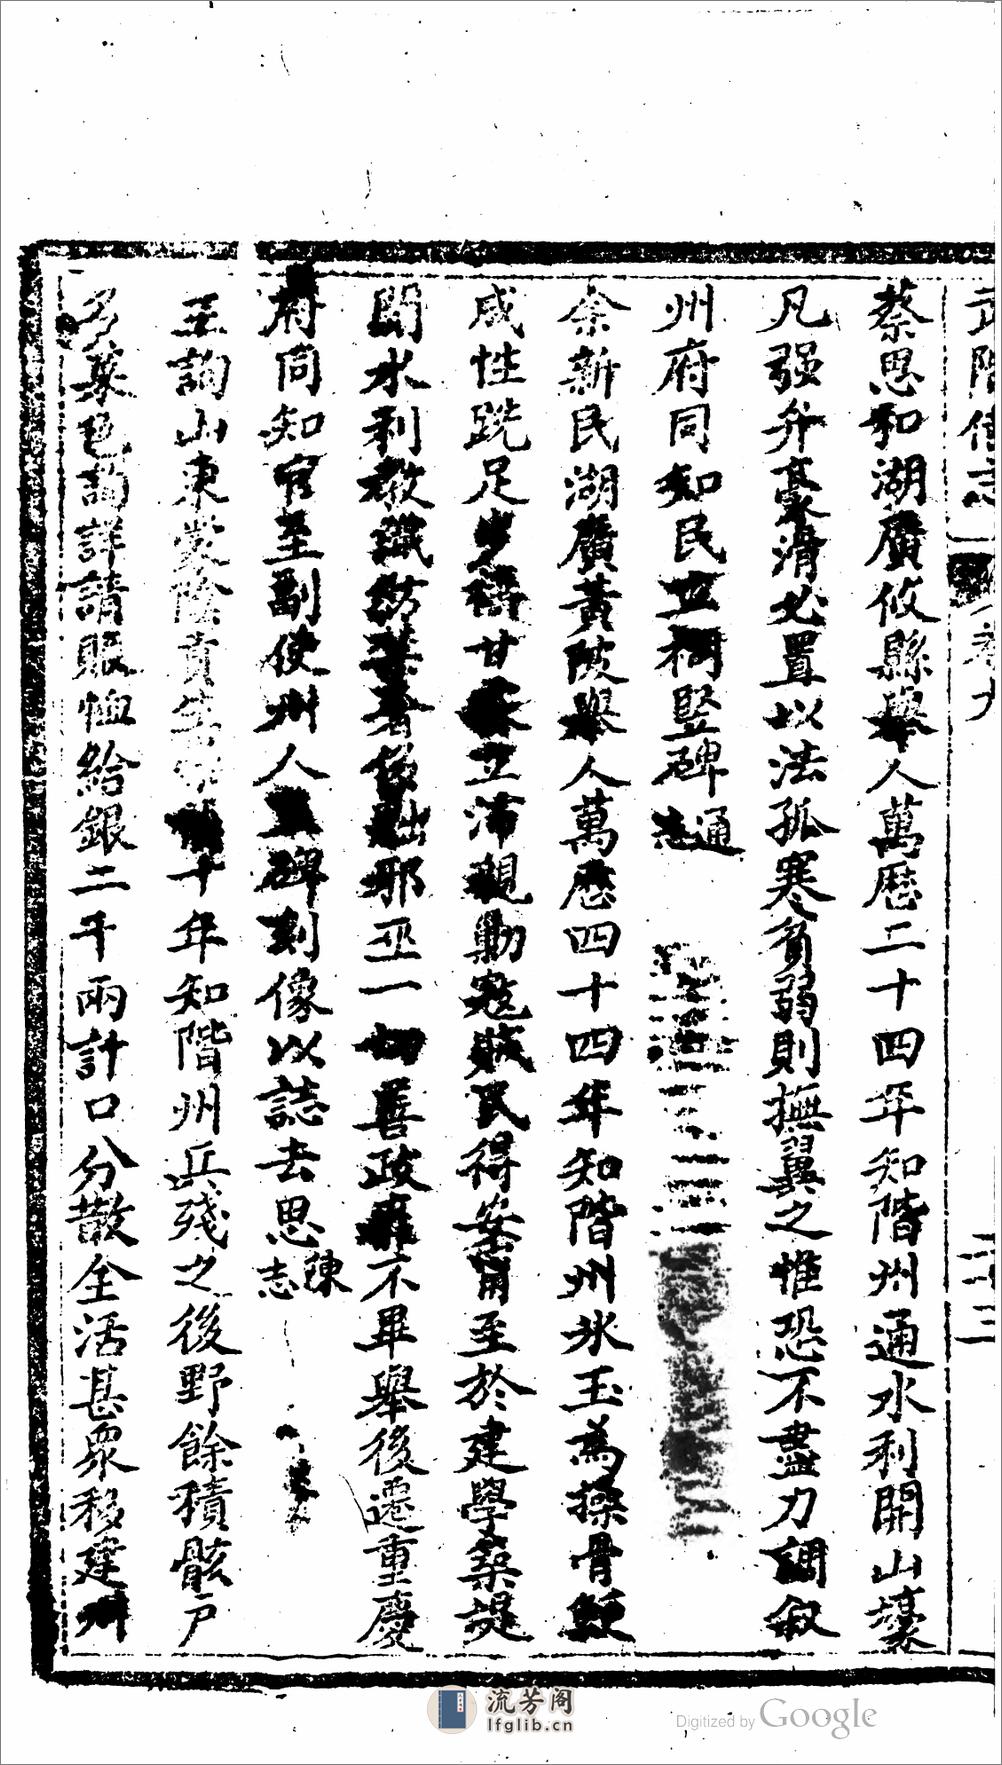 蔡思和湖廣攸縣舉人萬曆二十四年知階州通水利開山壕
凡强弁豪滑必置以法孤寒貧弱則撫翼之惟恐不盡力調叙
州府同知民立祠竪碑通志
余新民湖廣黃陂舉人萬曆四十四年知階州氷玉為操骨鯁
成性跣足步禱甘霖立沛親勦寇賊民得安甯至於建學築堤
開水利教織紡業著後黜邪巫一切善政靡不畢舉後遷重慶
府同知官至副使州人立碑刻像以誌去思陳志
王詢山東蒙陰貢生十年知階州兵殘之後野餘積骸戶
多菜色詢詳請賑恤給銀二千兩計口分散全活甚衆移建州
武階備志
卷九
二十三
流芳阁
lfglib.cn
Digitized by Google